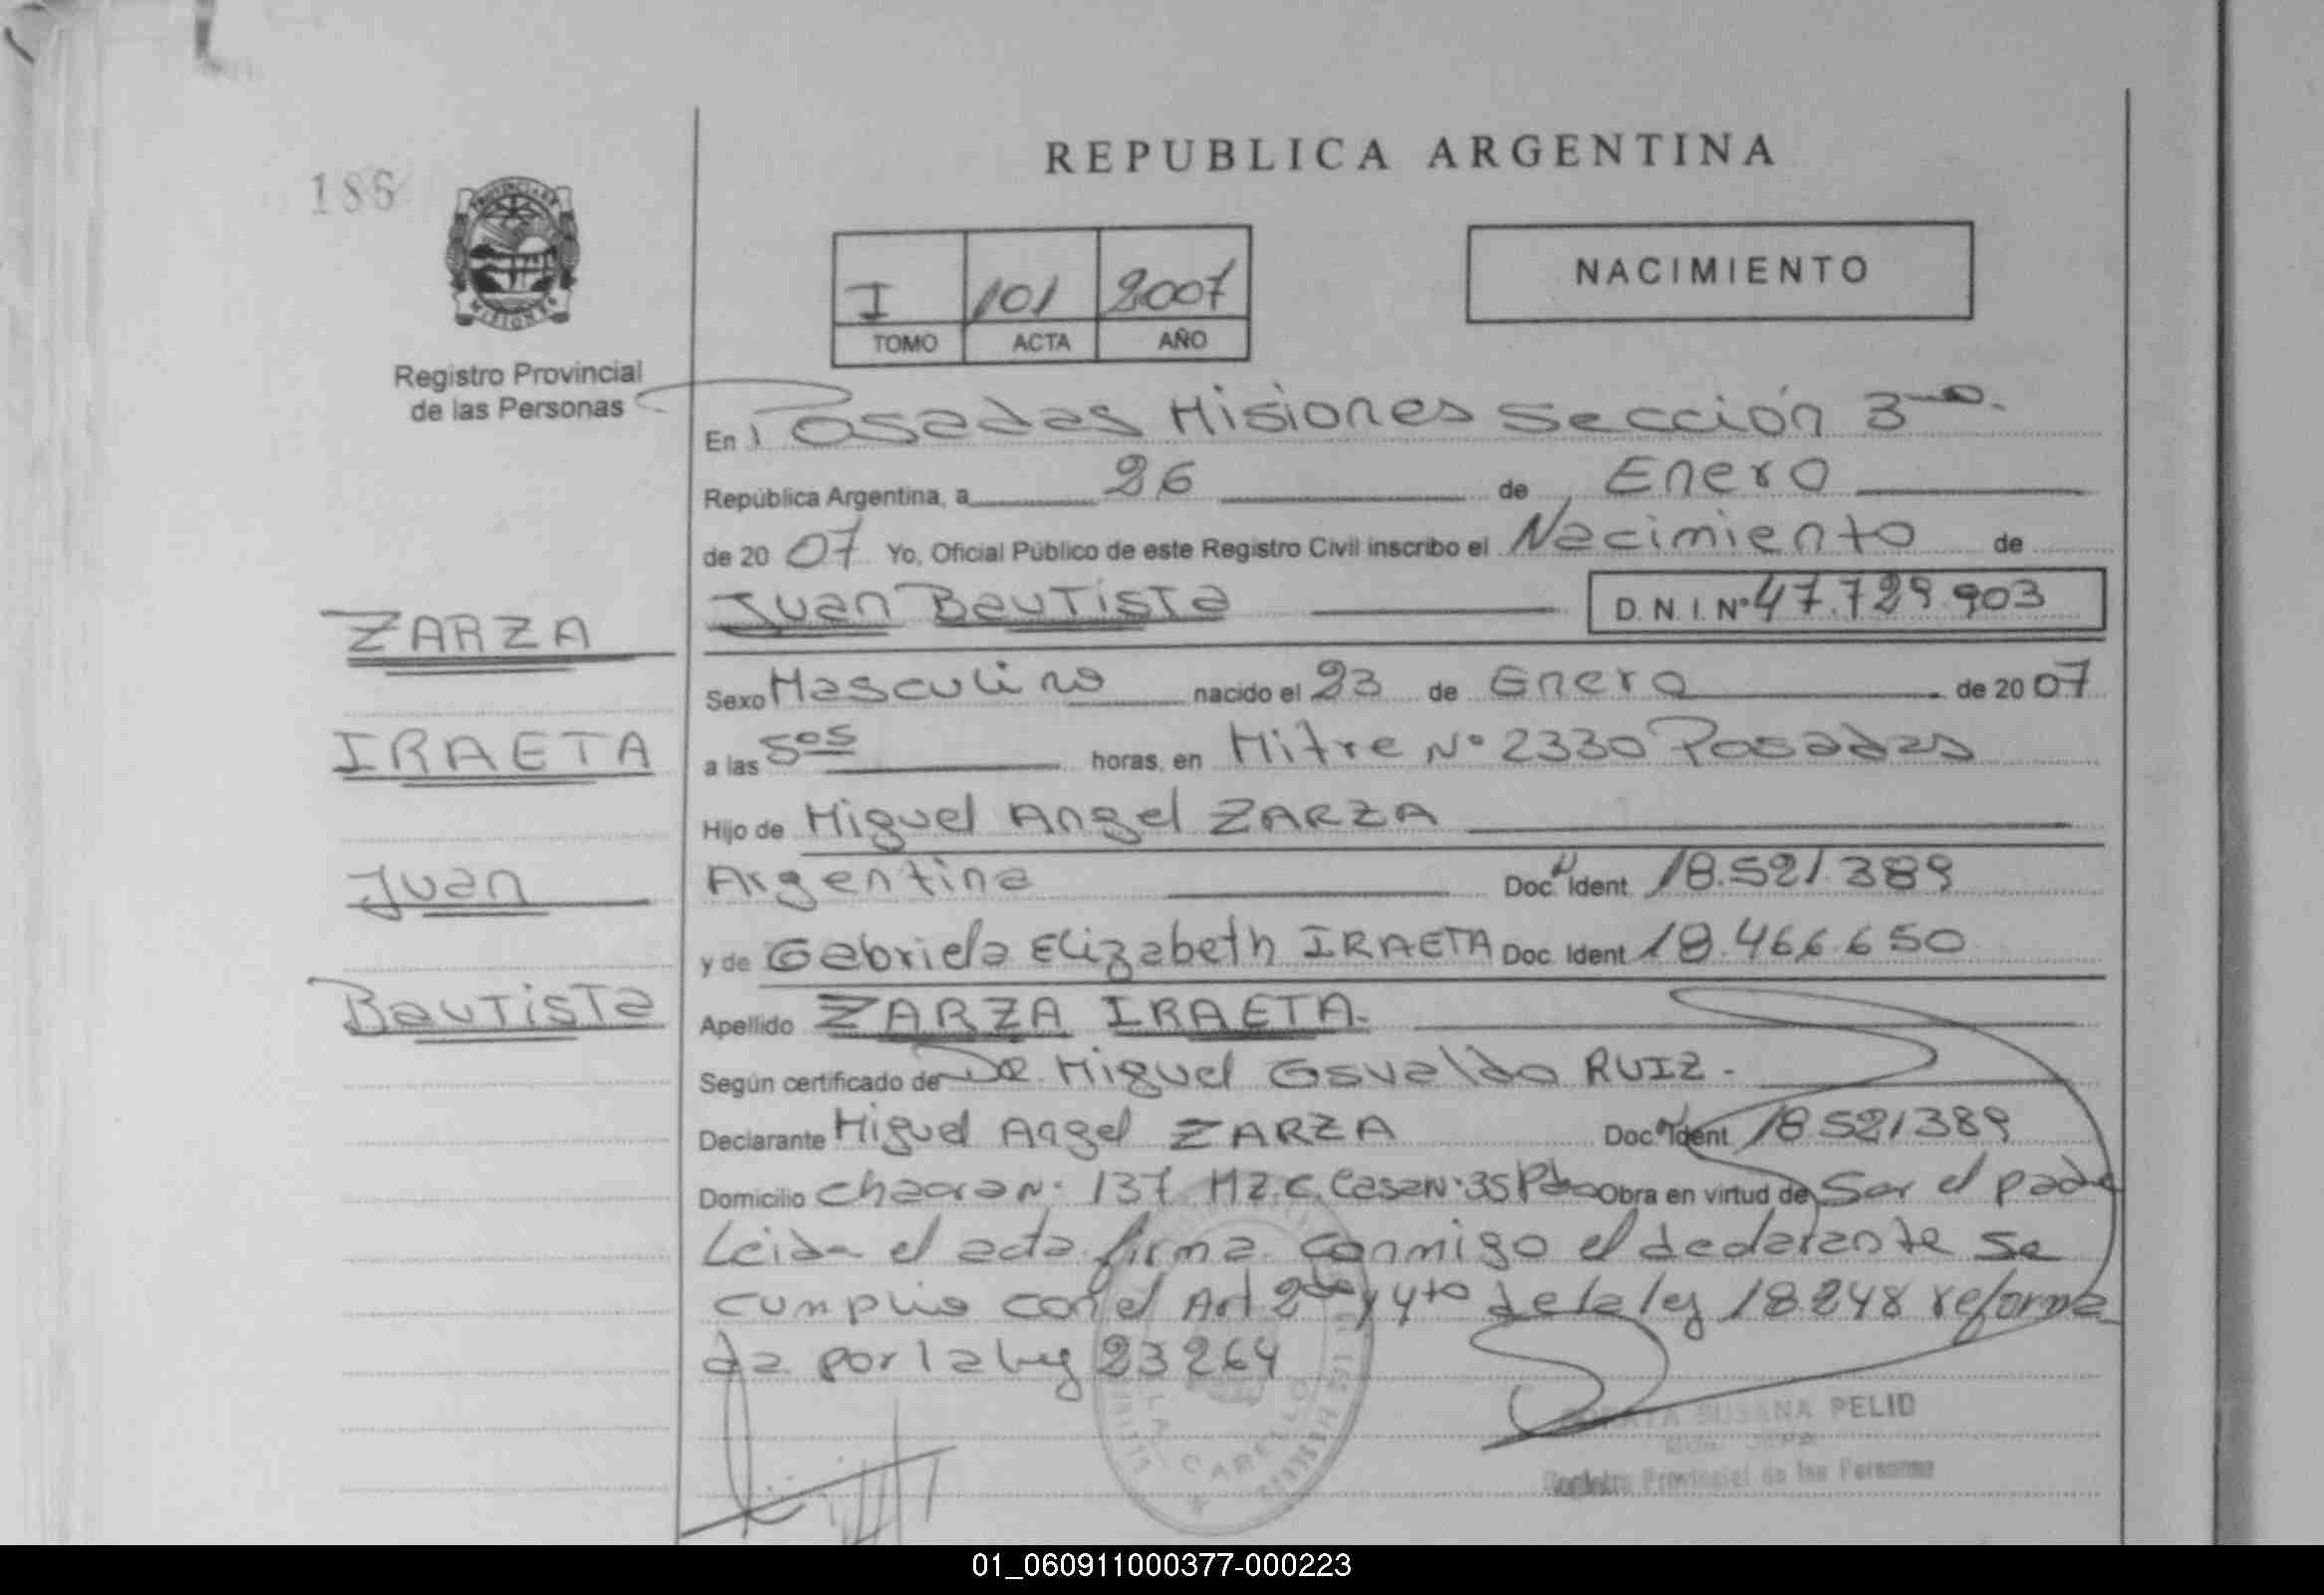 186
REPUBLICA ARGENTINA
PROVINCIA DE
MISIONES
I 101 2007
TOMO ACTA AÑO
NACIMIENTO
Registro Provincial
de las Personas
En Posadas Misiones Sección 3ra.
República Argentina, a 26 de Enero
de 2007 Yo, Oficial Público de este Registro Civil inscribo el Nacimiento de
Juan Bautista D.N.I. Nº 47.729.903
ZARZA
Sexo Masculino nacido el 23 de Enero de 2007
IRAETA
a las 5os horas, en Mitre Nº 2330 Posadas
Hijo de Miguel Angel ZARZA
Juan
Argentina Doc. Ident 18.521.389
y de Gabriela Elizabeth IRAETA Doc. Ident 18.466.650
Bautista
Apellido ZARZA IRAETA.
Según certificado de Dr. Miguel Osvaldo RUIZ.
Declarante Miguel Angel ZARZA Doc. Ident 18.521389
Domicilio Chacra Nº 137 MZ.C. Casa Nº 35 Pdas Obra en virtud de Ser el padre
Leida el acta firma conmigo el declarante se
cumplio con el Art 2do y 4to de la ley 18.248 reforma
da por la ley 23264
SUSANA PELID
Registro Provincial de las Personas
01_060911000377-000223